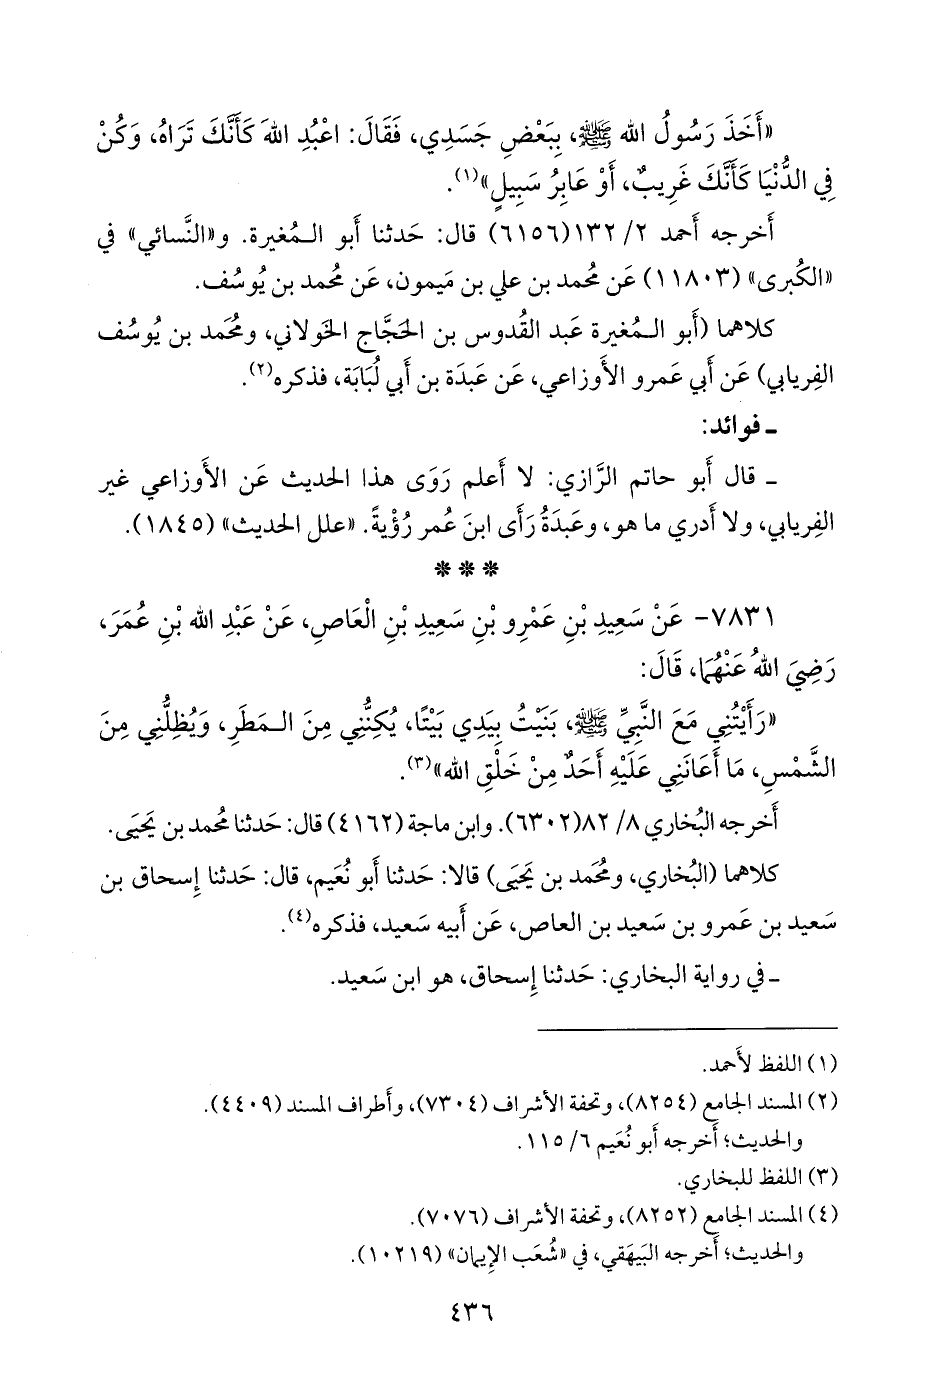 «أَخَذَ رَسُولُ الله ﷺ، بِبَعْضِ جَسَدِي، فَقَالَ: اعْبُدِ اللهَ كَأَنَّكَ تَرَاهُ، وَكُنْ
فِي الدُّنْيَا كَأَنَّكَ غَرِيبٌ، أَوْ عَابِرُ سَبِيلٍ»(١).
أَخرجه أَحمد ٢/ ١٣٢(٦١٥٦) قال: حَدثنا أَبو الـمُغيرة. و«النَّسائي» في
«الكُبرى» (١١٨٠٣) عَن مُحمد بن علي بن مَيمون، عَن مُحمد بن يُوسُف.
كلاهما (أَبو الـمُغيرة عَبد القُدوس بن الحَجَّاج الخَولاني، ومُحَمد بن يُوسُف
الفِريابي) عَن أَبي عَمرو الأَوزاعي، عَن عَبدَة بن أَبي لُبَابَة، فذكره(٢).
ـ فوائد:
ـ قال أَبو حاتم الرَّازي: لا أَعلم رَوَى هذا الحَديث عَن الأَوزاعي غير
الفِريابي، ولا أَدري ما هو، وعَبدَةُ رَأَى ابنَ عُمر رُؤْيةً. «علل الحَديث» (١٨٤٥).
* * *
٧٨٣١- عَنْ سَعِيدِ بْنِ عَمْرِو بْنِ سَعِيدِ بْنِ الْعَاصِ، عَنْ عَبْدِ الله بْنِ عُمَرَ،
رَضِيَ اللهُ عَنْهُمَا، قَالَ:
«رَأَيْتُنِي مَعَ النَّبِيِّ ﷺ، بَنَيْتُ بِيَدِي بَيْتًا، يُكِنُّنِي مِنَ الـمَطَرِ، وَيُظِلُّنِي مِنَ
الشَّمْسِ، مَا أَعَانَنِي عَلَيْهِ أَحَدٌ مِنْ خَلْقِ الله»(٣).
أَخرجه البُخاري ٨/ ٨٢(٦٣٠٢). وابن ماجة (٤١٦٢) قال: حَدثنا مُحمد بن يَحيَى.
كلاهما (البُخاري، ومُحَمد بن يَحيَى) قالا: حَدثنا أَبو نُعَيم، قال: حَدثنا إِسحاق بن
سَعيد بن عَمرو بن سَعيد بن العاص، عَن أَبيه سَعيد، فذكره(٤).
ـ في رواية البخاري: حَدثنا إِسحاق، هو ابن سَعيد.
(١) اللفظ لأَحمد.
(٢) المسند الجامع (٨٢٥٤)، وتحفة الأشراف (٧٣٠٤)، وأَطراف المسند (٤٤٠٩).
والحديث؛ أَخرجه أَبو نُعَيم ٦/ ١١٥.
(٣) اللفظ للبخاري.
(٤) المسند الجامع (٨٢٥٢)، وتحفة الأشراف (٧٠٧٦).
والحديث؛ أَخرجه البَيهَقي، في «شُعَب الإِيمان» (١٠٢١٩).
٤٣٦